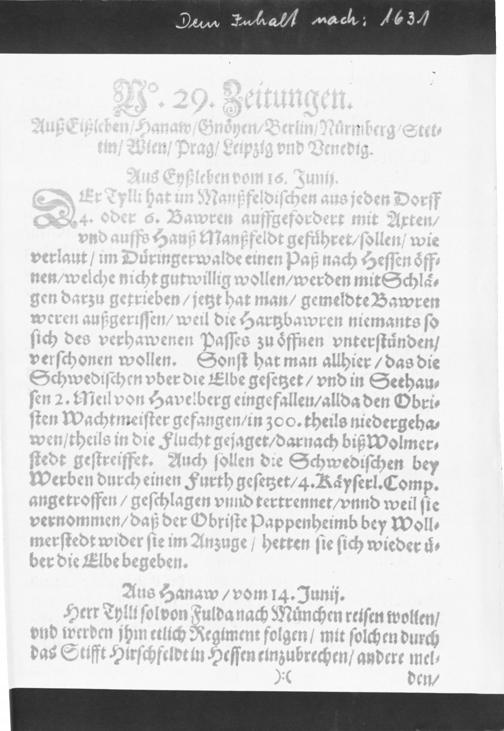 Dem Inhalt nach: 1631
Nº. 29. Zeitungen.
Auß Eißleben/Hanaw/Gnöyen/Berlin/Nürmberg/Stet-
tin/Wien/Prag/Leipzig vnd Venedig.
Aus Eyßleben vom 16. Junij.
DEr Tylli hat im Manßfeldischen aus jeden Dorff
4. oder 6. Bawren auffgefordert mit Axten/
vnd auffs Hauß Manßfeldt geführet/sollen/ wie
verlaut/ im Düringerwalde einen Paß nach Hessen öff-
nen/welche nicht gutwillig wollen/werden mit Schlä-
gen darzu getrieben/ jetzt hat man/ gemeldte Bawren
weren außgerissen/ weil die Hartzbawren niemants so
sich des verhawenen Passes zu öffnen vnterstünden/
verschonen wollen. Sonst hat man allhier/ das die
Schwedischen vber die Elbe gesetzet/ vnd in Seehau-
sen 2. Meil von Havelberg eingefallen/allda den Obri-
sten Wachtmeister gefangen/in 300. theils niedergeha-
wen/theils in die Flucht gejaget/darnach biß Wolmer-
stedt gestreiffet. Auch sollen die Schwedischen bey
Werben durch einen Furth gesetzet/4. Käyserl. Comp.
angetroffen/ geschlagen vnnd tertrennet/vnnd weil sie
vernommen/ daß der Obriste Pappenheimb bey Woll-
merstedt wider sie im Anzuge/ hetten sie sich wieder ü-
ber die Elbe begeben.
Aus Hanaw/ vom 14. Junij.
Herr Tylli sol von Fulda nach München reisen wollen/
vnd werden jhm etlich Regiment folgen/ mit solchen durch
das Stifft Hirschfeldt in Hessen einzubrechen/ andere mel-
):( den/